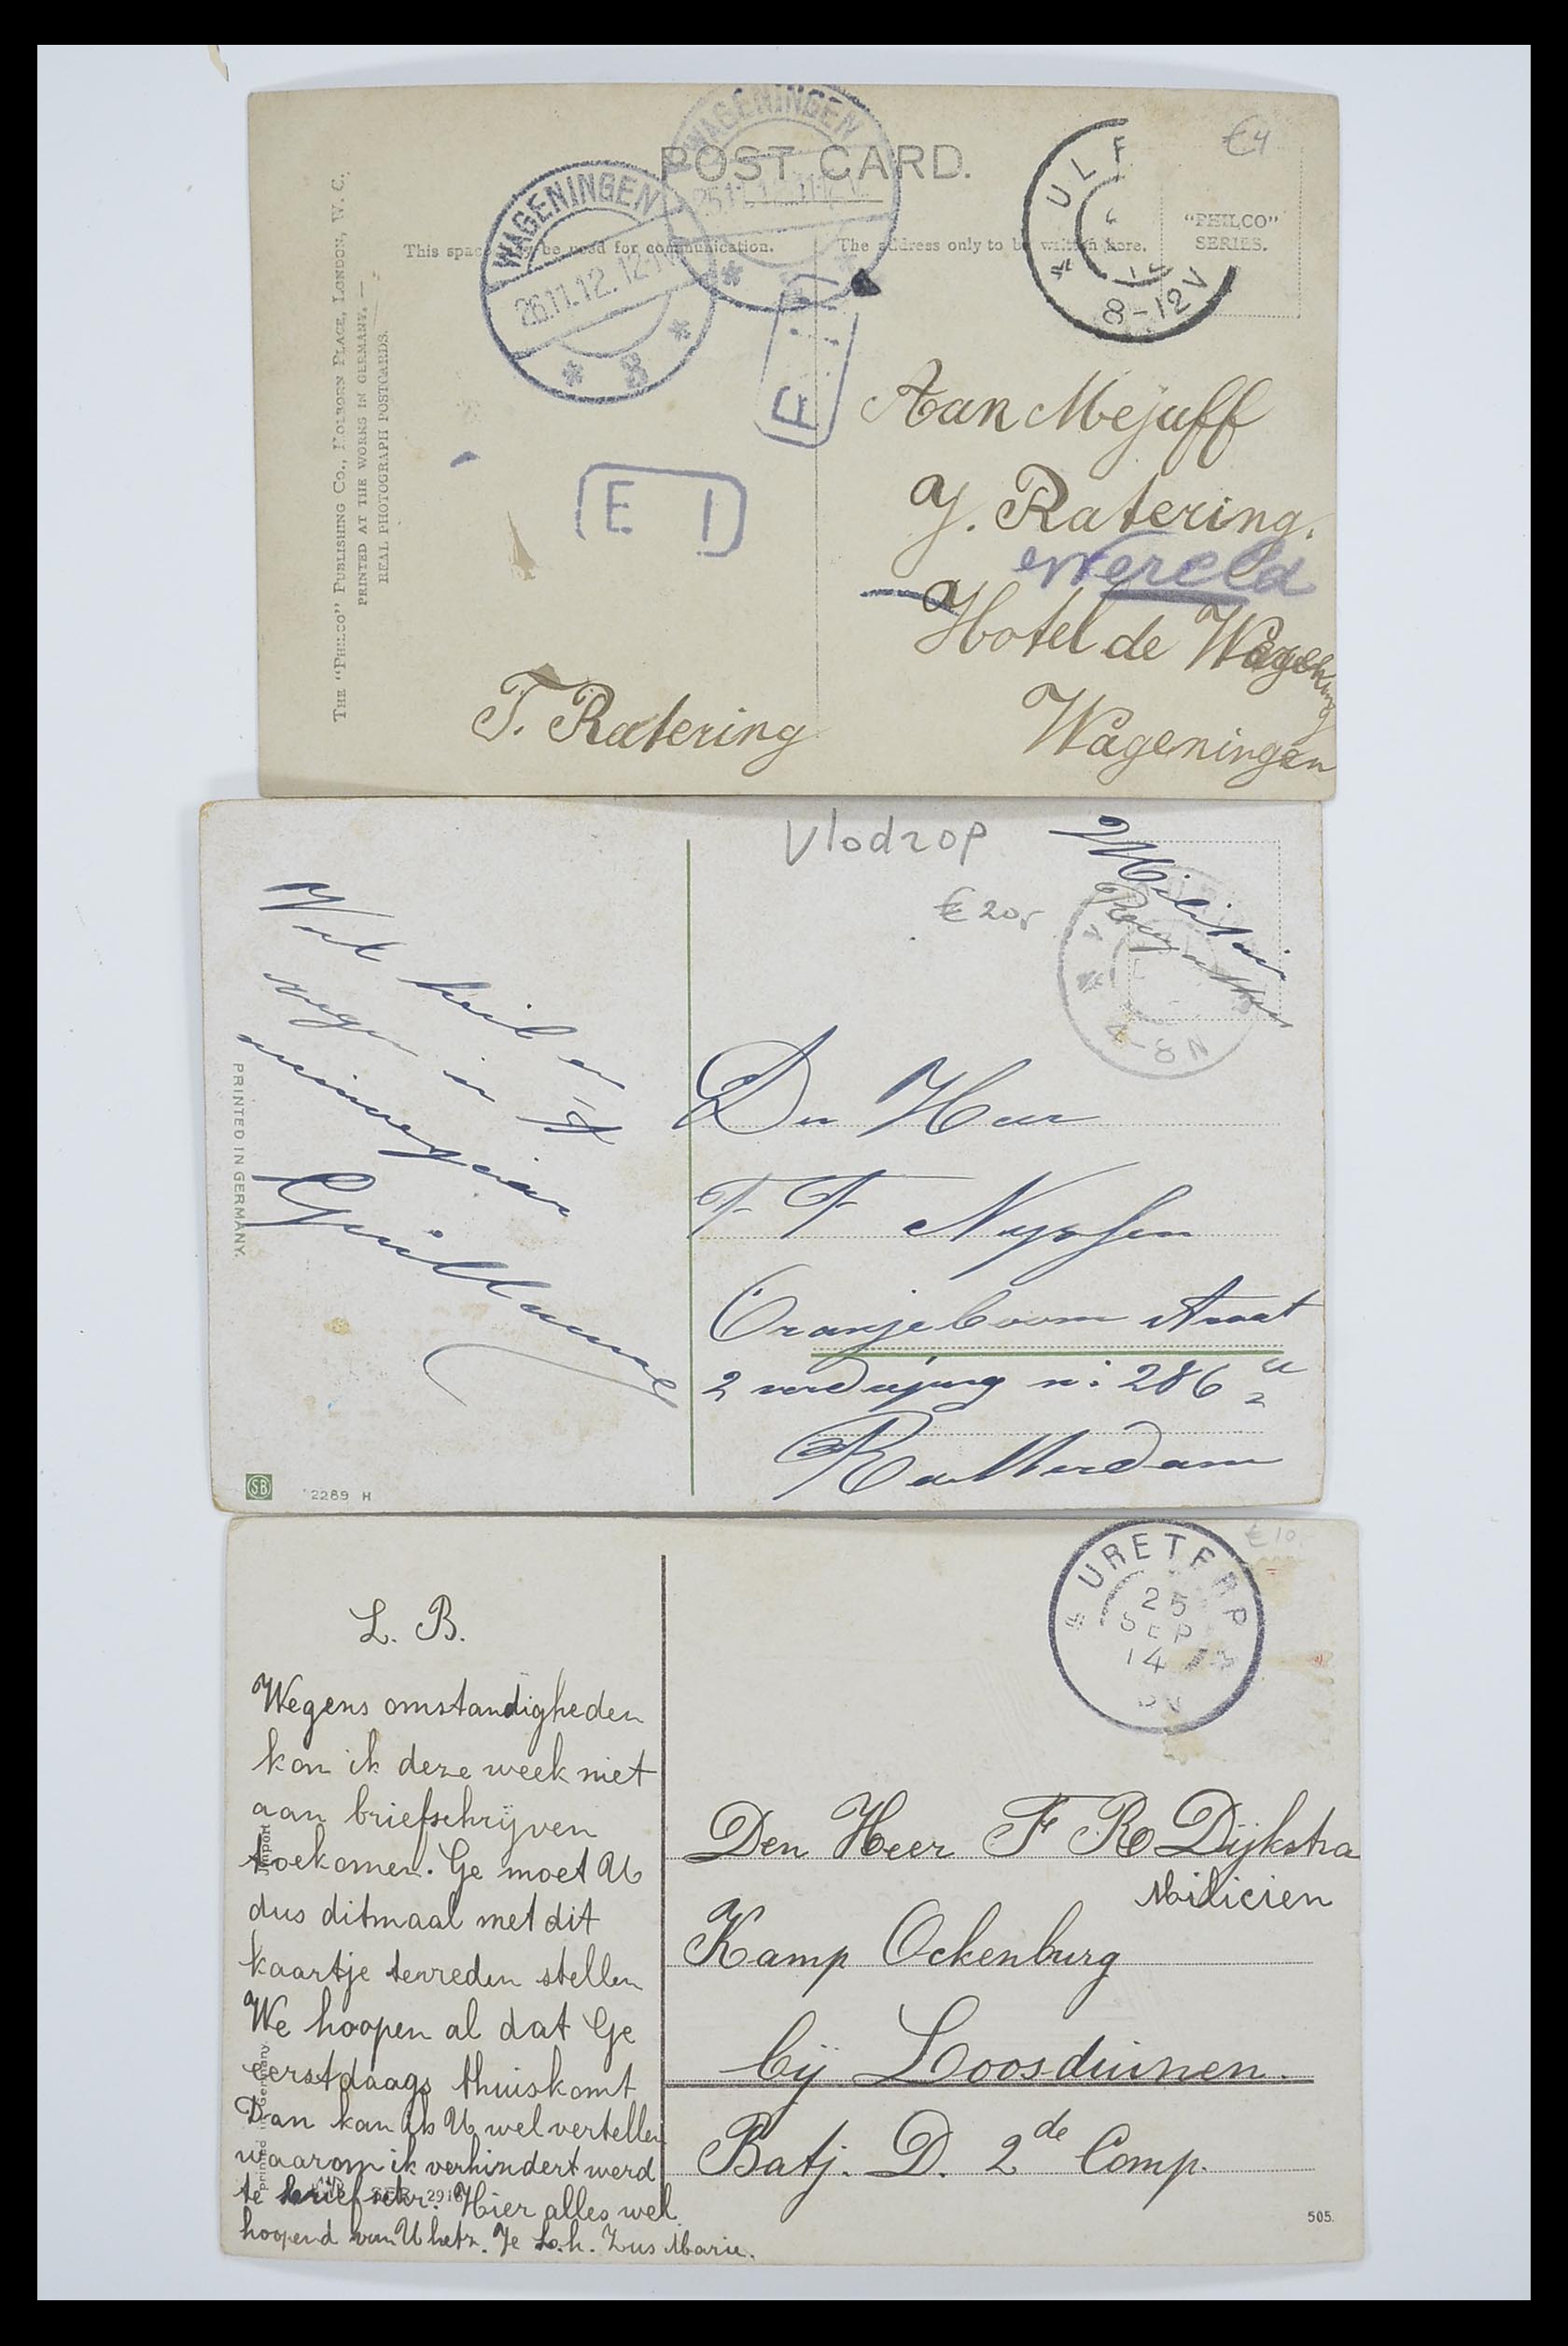 WAGENINGEN
26.11.12.
8
WAGENINGEN
POST CARD.
ULF
8-12V
€4
"PHILCO"
SERIES.
This space be used for communication.
The address only to be written here.
THE "PHILCO" PUBLISHING CO., HOLBORN PLACE, LONDON, W. C.
PRINTED AT THE WORKS IN GERMANY.
REAL PHOTOGRAPH POSTCARDS.
E I
Aan Mejuff
J. Ratering.
Wereld
Hotel de
T. Ratering
Wageningen
Vlodrop
€ 20,-
Militair
4-8N
Veel heil en
zegen in 't
Guillaume
PRINTED IN GERMANY.
SB
2289 H
Den Heer
F F Nypsen
Oranjeboom straat
2 verdieping no: 286
Rotterdam
URETERP
25
SEP
14
€10
L. B.
Wegens omstandigheden
kon ik deze week niet
aan briefschrijven
toekomen. Ge moet U
dus ditmaal met dit
kaartje tevreden stellen
We hoopen al dat Ge
eerstdaags thuiskomt
Dan kan ik U wel vertellen
waarom ik verhindert werd
te briefschr. Hier alles wel
hoopend van U hetz. Je Zus Marie.
Den Heer F R Dijkstra
Milicien
Kamp Ockenburg
bij Loosduinen.
Batj. D. 2de Comp.
505.